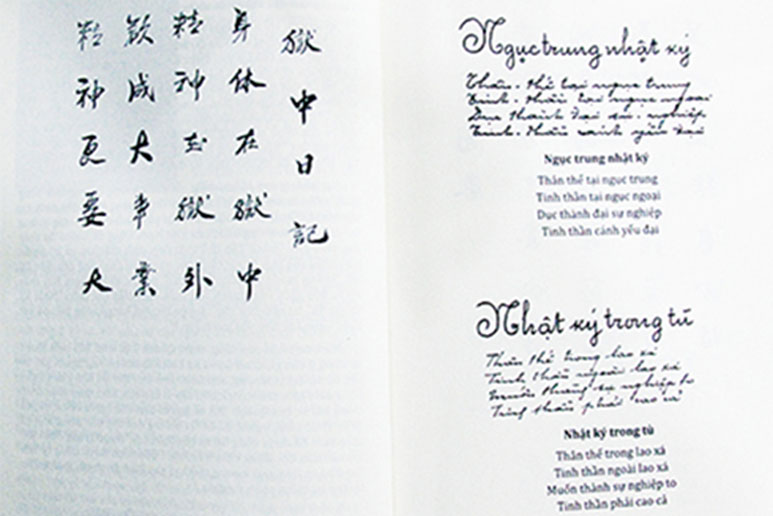 獄中日記
身体在獄中
精神在獄外
欲成大事業
精神更要大
Ngục trung nhật ký
Thân thể tại ngục trung
Tinh thần tại ngục ngoại
Dục thành đại sự nghiệp
Tinh thần cánh yếu đại
Ngục trung nhật ký
Thân thể tại ngục trung
Tinh thần tại ngục ngoại
Dục thành đại sự nghiệp
Tinh thần cánh yếu đại
Nhật ký trong tù
Thân thể trong lao xá
Tinh thần ngoài lao xá
Muốn thành sự nghiệp to
Tinh thần phải cao cả
Nhật ký trong tù
Thân thể trong lao xá
Tinh thần ngoài lao xá
Muốn thành sự nghiệp to
Tinh thần phải cao cả